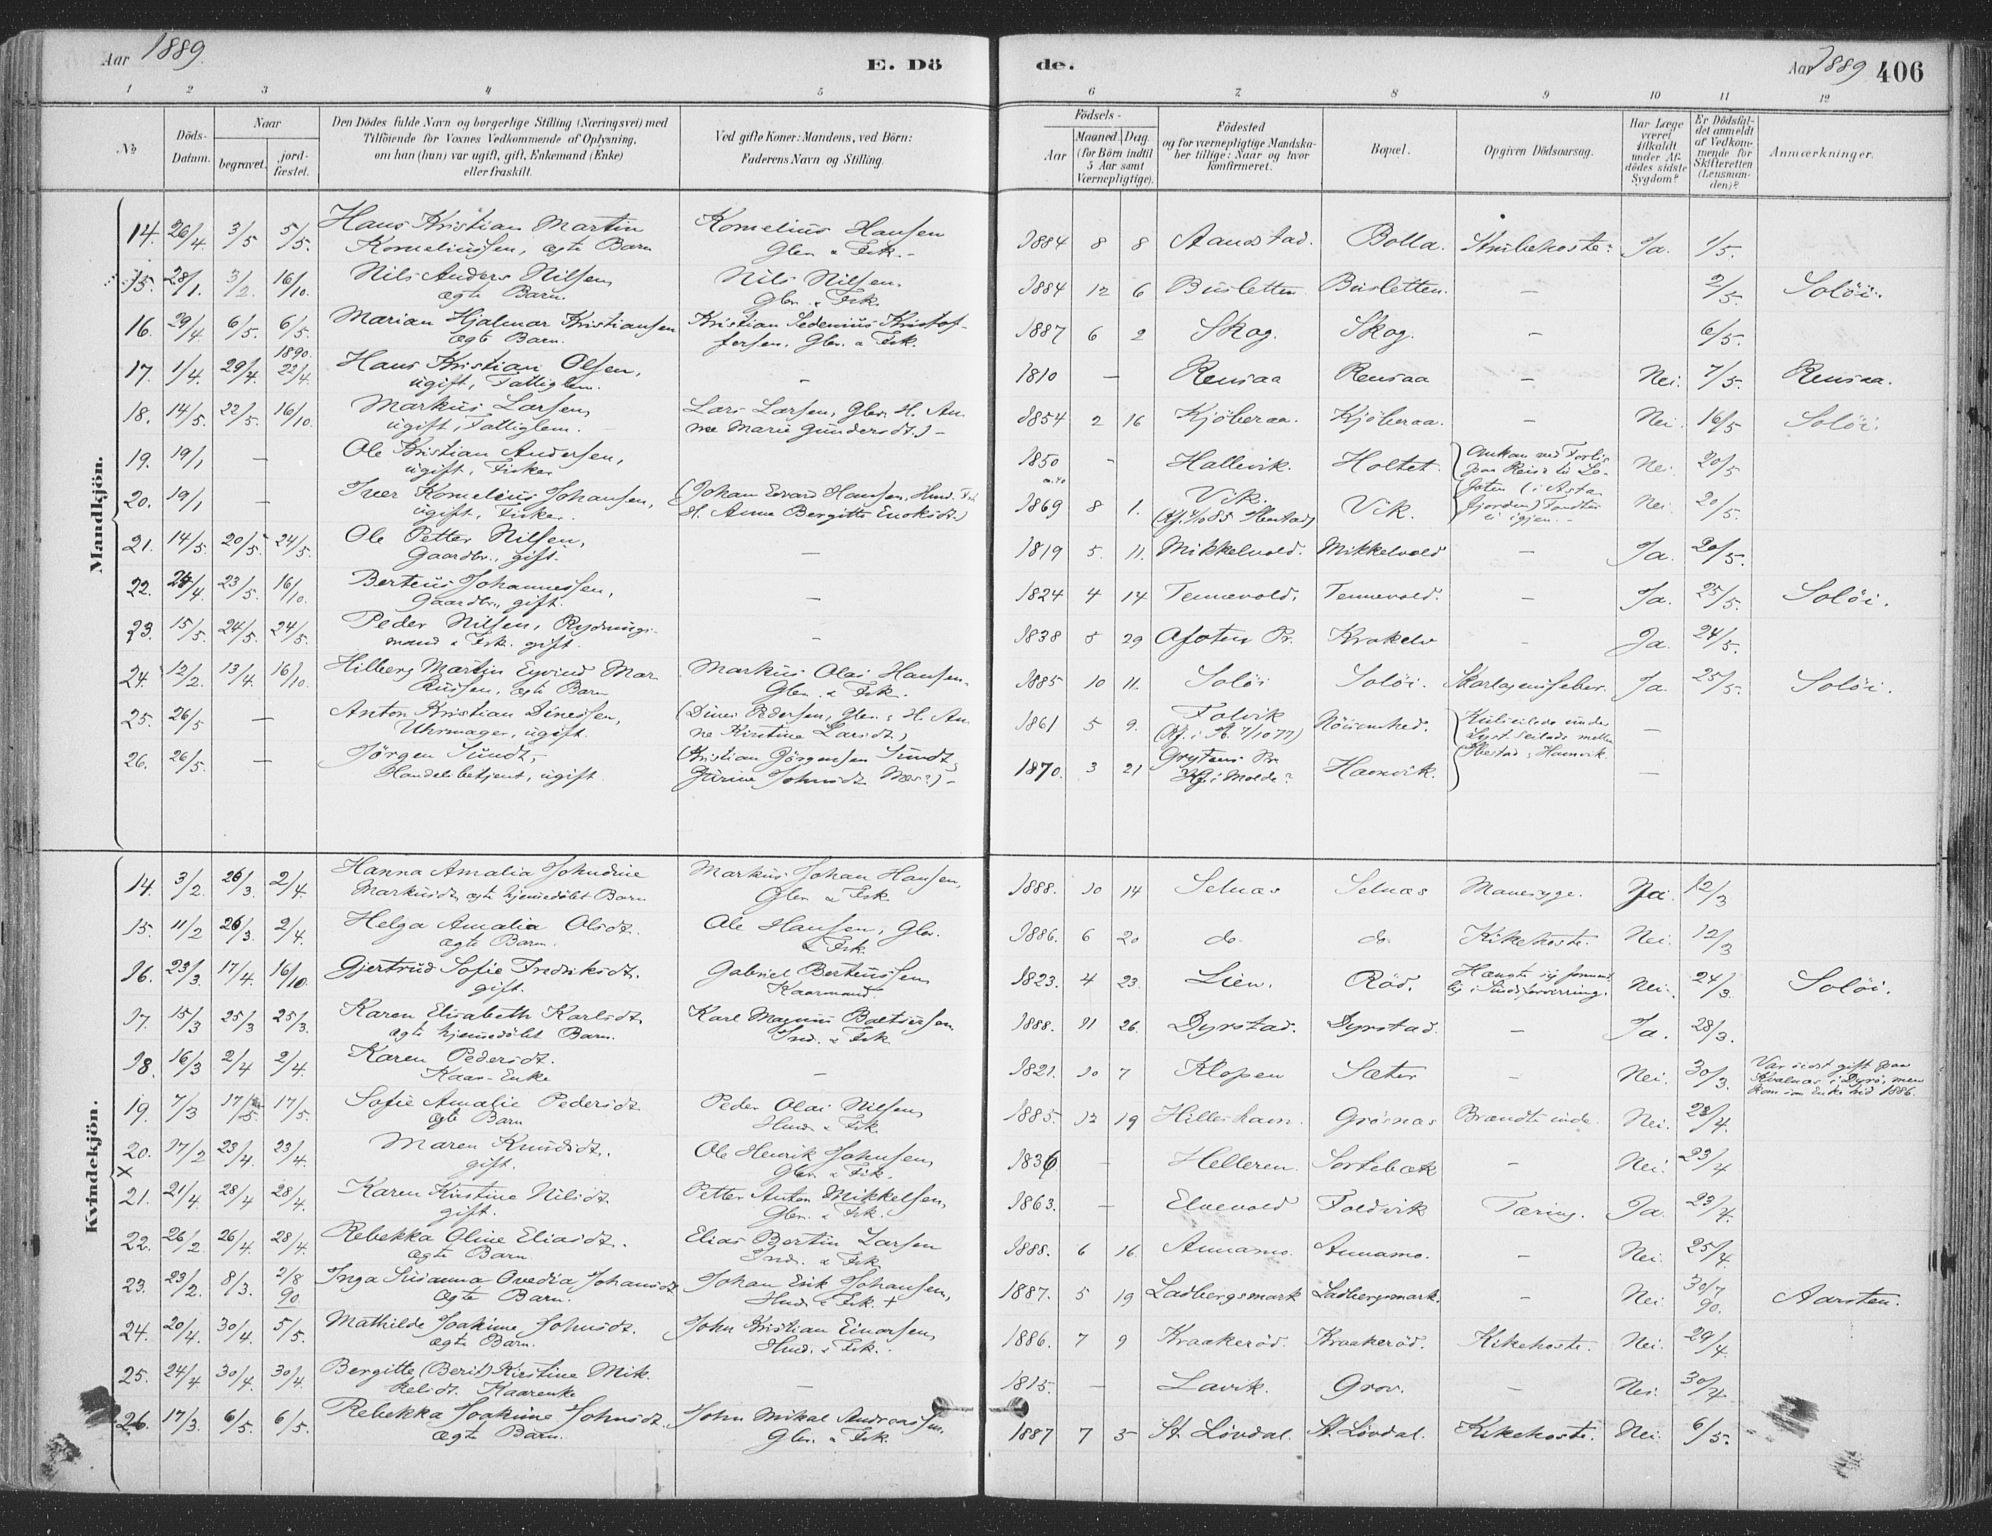 Aar 1889. E. Dö de. Aar 1889 406
1 2 3 4 5 6 7 8 9 10 11 12
No
Döds-Datum.
Naar
begravet.
jord-fæstet.
Den Dödes fulde Navn og borgerlige Stilling (Næringsvei) med
Tilföiende for Voxnes Vedkommende af Oplysning,
om han (hun) var ugift, gift, Enkemand (Enke)
eller fraskilt.
Ved gifte Koner: Mandens, ved Börn:
Faderens Navn og Stilling.
Födsels-
Aar
Maaned
Dag
(for Börn indtil
5 Aar samt
Værnepligtige).
Födested
og for værnepligtige Mandska-
ber tillige: Naar og hvor
konfirmeret.
Bopæl.
Opgiven Dödsaarsag.
Har Læge
været
tilkaldt
under Af-
dödes sidste
Sygdom?
Er Dödsfal-
det anmeldt
af Vedkom-
mende for
Skifteretten
(Lensman-
den)?
Anmærkninger.
Mandkjön.
14. 26/4 3/5 5/5. Hans Kristian Martin Kornelius Hansen 1884 8 8 Aanstad. Bolla. Strubehoste. Ja. 1/5.
Korneliussen, ægte Barn Gbr. & Fisk.
15. 28/1. 3/2. 16/10. Nils Anders Nilsen, Nils Nilsen. 1884 12 6 Busletten Busletten. – 2/5. Soløi.
ægte Barn. Gbr. & Fisk.
16. 29/4 6/5. 6/5. Marian Hjalmar Kristiansen Kristian Sedenius Kristof- 1887 6 2 Skog. Skog. – 6/5.
ægte Barn. fersen. Gbr. & Fisk.
17. 1/4. 29/4. 1890. 22/4. Hans Kristian Olsen, – 1810 – Rensaa Rensaa – Nei. 7/5. Rensaa.
ugift, Fattiglem.
18. 14/5 22/5. 16/10. Markus Larsen, Lars Larsen, Gbr. H. An- 1854 2 16 Kjöberaa. Kjöberaa. – Nei. 16/5 Soløi.
ugift, Fattiglem. ne Marie Gundersdt.) –
19. 19/1 – Ole Kristian Andersen, 1850 – Hallevik. Holtet. Omkom ved Forlis Nei. 20/5
ugift, Fisker. paa Reise til Lo-
20. 19/1 Iver Kornelius Johansen, (Johan Edvard Hansen, Husm. 1869 8 1. Vik. Vik. foten (i Asta- Nei. 20/5.
ugift, Fisker. H. Anne Bergitte Enoksdt.) fjorden) Fandtes
ei igjen. –
21. 14/5. 20/5. 24/5. Ole Petter Nilsen, – 1819 5. 11. Mikkelvold. Mikkelvold – Ja. 20/5.
Gaardbr., gift.
22. 24/4. 23/5. 16/10. Berteus Johannessen, – 1824 4 14 Tennevold. Tennevold. – Ja. 25/5. Soløi.
Gaardbr., gift.
23. 15/5. 24/5. 24/5. Peder Nilsen, Rydnings- – 1838 5 29 Ofoten Pr. Krakelv – Ja. 24/5.
mand & Fisk. gift.
24. 12/2. 13/4. 16/10. Hilberg Martin Eyvind Mar- Markus Olai Hansen. 1885 10 11. Soløi Soløi. Skarlagensfeber. Ja. 25/5. Soløi.
kussen, ægte Barn Gbr. & Fisk.
25. 26/5 – Anton Kristian Dinessen, (Dines Pedersen, Gbr. & H. An- 1861 5 9. Folvik Nöisomhed. Kulseilede under –
Uhrmager, ugift. ne Kirstine Larsdt.) Lyst-Seilads mellem
26. 26/5. – Jørgen Sundt, (Kristian Jörgensen Sundt, 1870. 3 21 Grytens Pr. Havnvik. Ibestad & Havnvik. –
Handelsbetjent, ugift. Kf. i Molde?
Kvindekjön.
14. 3/2. 26/3. 2/4. Hanna Amalia Johndine Markus Johan Hansen, 1888. 10 14 Selnæs Selnæs Mavesyge. Ja. 12/3
Markusdt. ægte hjemmedøbt Barn Gbr. & Fisk.
15. 11/2 26/3. 2/4. Helga Amalia Olsdt. Ole Hansen, Gbr. 1886. 6 20 do. do. Kikehoste. Nei. 12/3
ægte Barn. & Fisk.
16. 23/3. 17/4. 16/10. Gjertrud Sofie Fredriksdt. Gabriel Berteussen 1823. 4 23. Lien. Röd. Hængte sig forment- Nei. 24/3. Soløi.
gift. Kaarmand. lig i Sindsforvirring.
17. 15/3 25/3 25/3. Karen Elisabeth Karlsdt. Karl Magnus Baltsersen 1888. 11 26. Dyrstad. Dyrstad. – Ja. 28/3.
ægte hjemmedøbt Barn. Ind. & Fisk.
18. 16/3 2/4 2/4. Karen Pedersdt. – 1821. 10 7 Klopen Sæter – Nei. 30/3. Var sidst gift paa
Kaar-Enke Kvalnæs i Dyrö, men
kom som Enke hid 1886.
19. 7/3 17/5. 17/5. Sofie Amalie Pedersdt. Peder Olai Nilsen, 1885. 12 19 Hilleshavn. Grøsnæs Brændte inde. Nei. 23/4.
ægte Barn Husm. & Fisk.
20. 17/2 23/4. 23/4. Maren Knudsdt. Ole Henrik Johnsen, 1836 – Helleren. Sortebæk – Nei. 23/4
gift. Gbr. & Fisk.
X
21. 21/4 28/4 28/4. Karen Kirstine Nilsdt. Petter Anton Mikkelsen, 1863. – Elvevold Foldvik Tæring. Ja. 23/4.
gift. Gbr. & Fisk.
22. 26/2. 26/4. 28/4. Rebekka Oline Eliasdt. Elias Bertin Larsen 1888. 6 16. Annamo. Annamo. – Nei. 25/4.
ægte Barn. Ind. & Fisk.
23. 23/2. 8/3. 2/8 90 Inga Susanna Ovedia Johansdt. Johan Erik Johansen, 1887. 5 19 Ladbergsmark Ladbergsmark. – Nei. 30/7 90. Aarsten.
ægte Barn. Husm. & Fisk. +
24. 20/4. 30/4. 5/5. Mathilde Joakime Johnsdt. John Kristian Einarsen, 1886. 7 9 Kraakeröd. Kraakeröd. Kikehoste. Nei. 29/4.
ægte Barn. Husm. & Fisk.
25. 24/4 30/4. 30/4. Bergitte (Berit) Kirstine Mik- – 1815. – Lavik. Grov. – Nei. 30/4.
kelsdt. Kaarenke
26. 17/3. 6/5. 6/5. Rebekka Joakime Johnsdt. John Mikal Andreassen. 1887 7 5 St. Lövdal. St. Lövdal. Kikehoste. Nei. 6/5.
ægte Barn. Gbr. & Fisk.